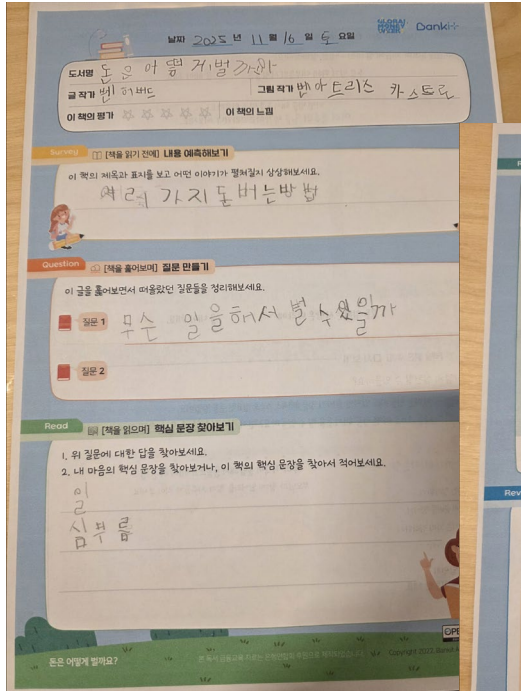 날짜 2025 년 11 월 16 일 토 요일
GLOBAL MONEY WEEK Banki+
도서명 돈은 어떻게 벌까
글 작가 벤 허버드 그림 작가 베아트리스 카스트로
이 책의 평가 ☆☆☆☆☆ 이 책의 느낌
Survey [책을 읽기 전에] 내용 예측해보기
이 책의 제목과 표지를 보고 어떤 이야기가 펼쳐질지 상상해보세요.
여러 가지 돈 버는 방법
Question [책을 훑어보며] 질문 만들기
이 글을 훑어보면서 떠올랐던 질문들을 정리해보세요.
질문 1 무슨 일을 해서 벌 수 있을까
질문 2
Read [책을 읽으며] 핵심 문장 찾아보기
1. 위 질문에 대한 답을 찾아보세요.
2. 내 마음의 핵심 문장을 찾아보거나, 이 책의 핵심 문장을 찾아서 적어보세요.
일
심부름
돈은 어떻게 벌까요?
Rev